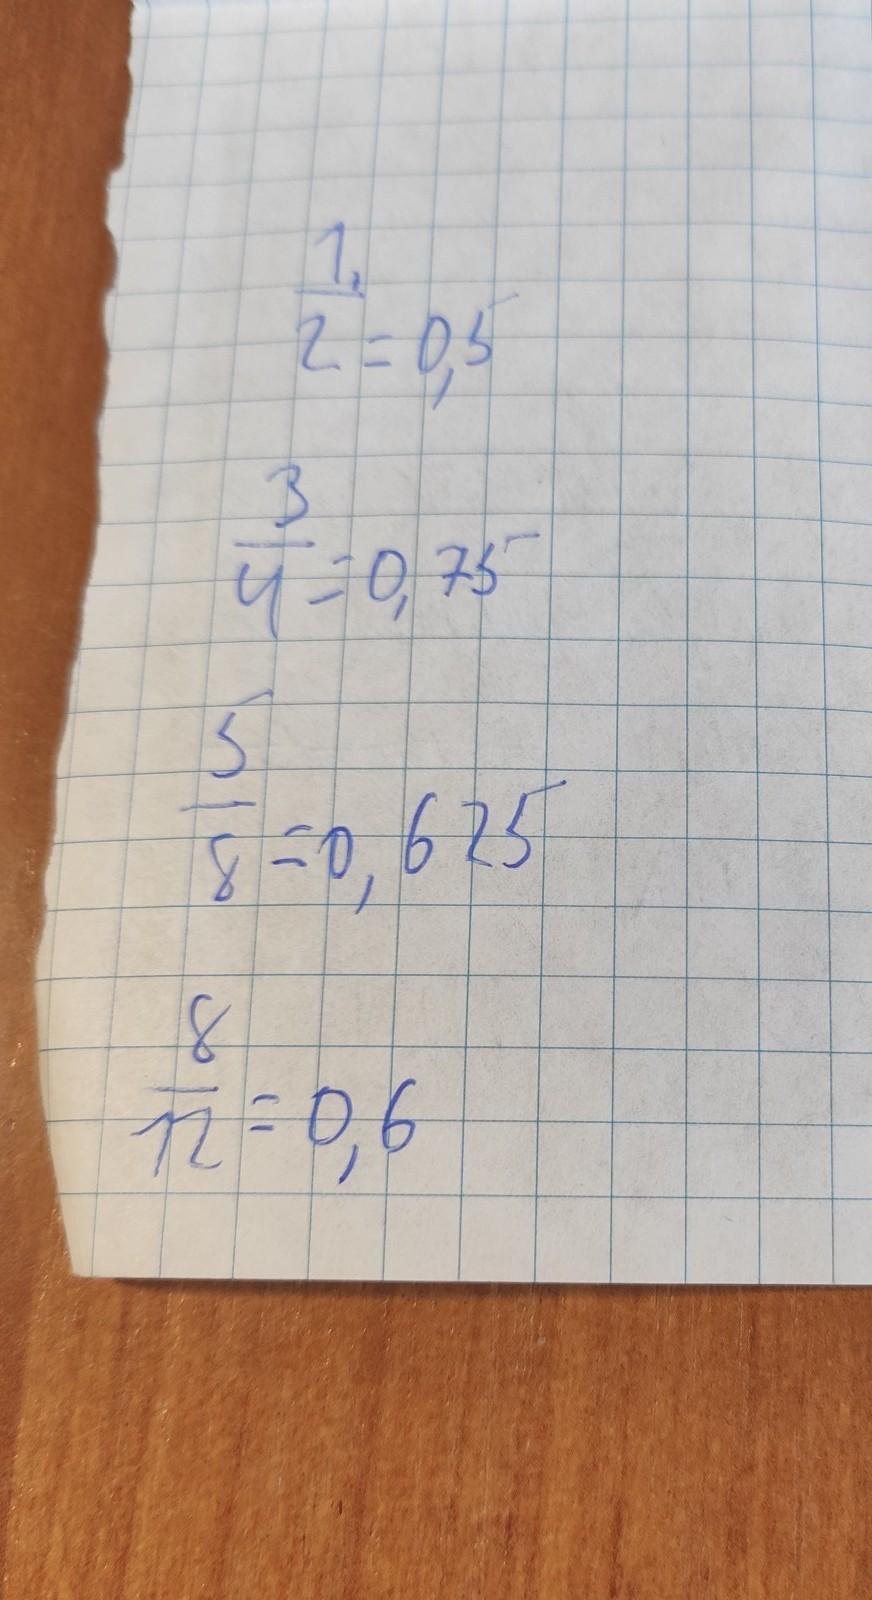 1/2 = 0,5
3/4 = 0,75
5/8 = 0,625
8/12 = 0,6